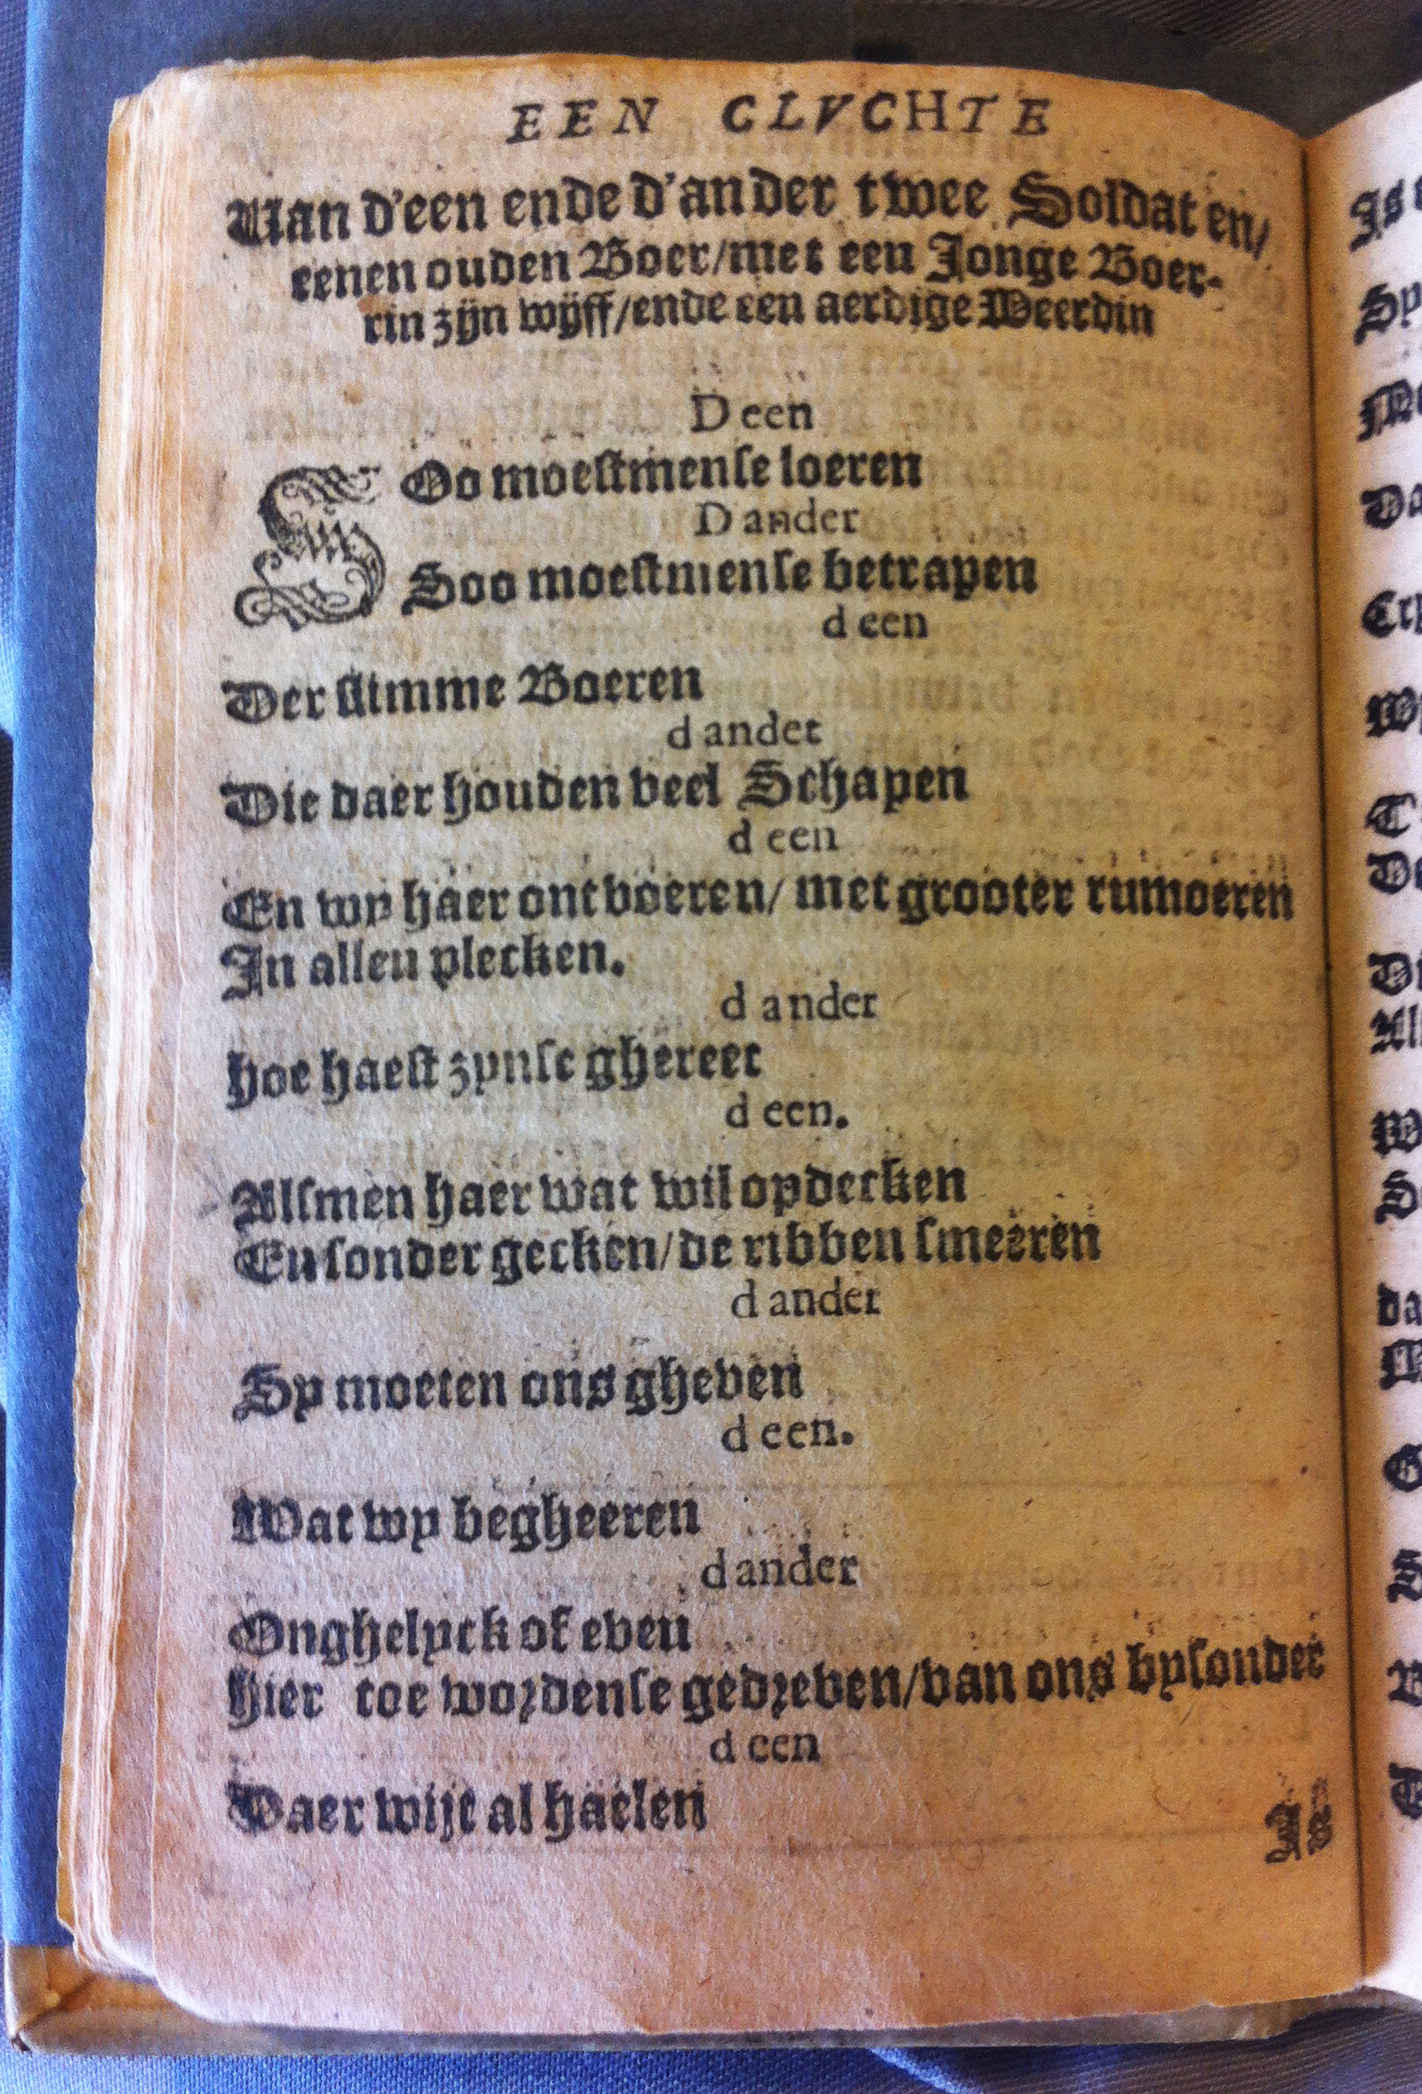 EEN CLVCHTE
Van d'een ende d'ander twee Soldaten/
eenen ouden Boer/met een Jonge Boer-
rin zijn wijff/ende een aerdige Weerdin
D een
SOo moestmense loeren
D ander
Soo moestmense betrapen
d een
Der slimme Boeren
d ander
Die daer houden veel Schapen
d een
En wy haer ontvoeren/ met grooter rumoeren
In allen plecken.
d ander
hoe haest zynse ghereet
d een.
Alsmen haer wat wil opdecken
En sonder gecken/de ribben smeeren
d ander
Sy moeten ons gheven
d een.
Wat wy begheeren
d ander
Onghelyck of even
hier toe wordense gedreven/van ons bysonder
d een
Daer wijt al haelen
Is
Sy
Da